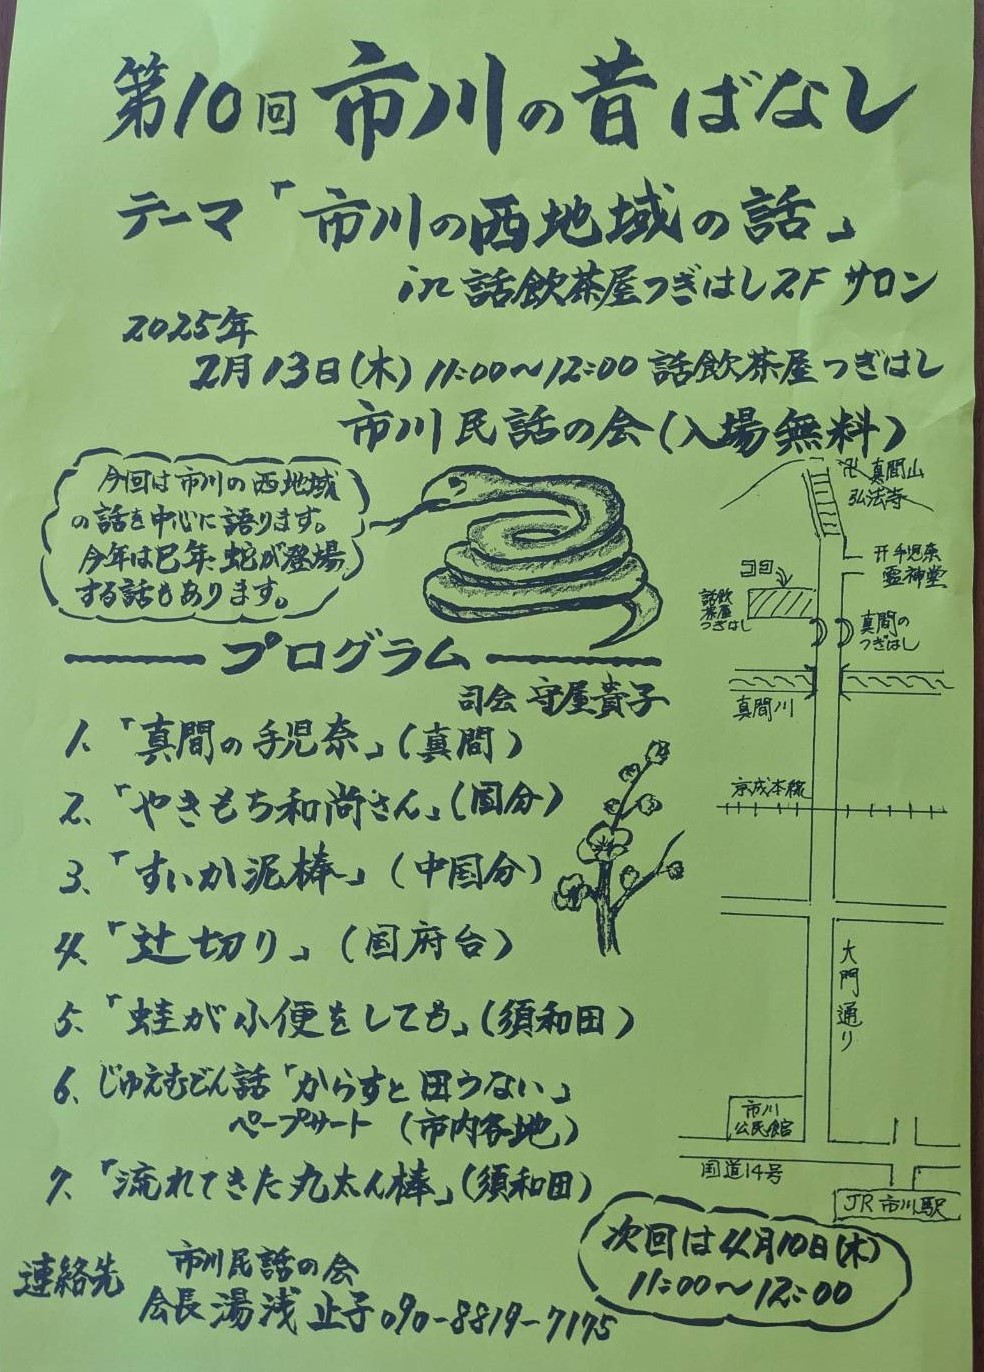 第10回 市川の昔ばなし
テーマ「市川の西地域の話」
in 話飲茶屋つぎはし2F サロン
2025年
2月13日(木) 11:00〜12:00 話飲茶屋つぎはし
市川民話の会(入場無料)
今回は市川の西地域
の話を中心に語ります。
今年は巳年、蛇が登場
する話もあります。
プログラム
司会 守屋貴子
1.「真間の手児奈」(真間)
2.「やきもち和尚さん」(国分)
3.「すいか泥棒」(中国分)
4.「辻切り」(国府台)
5.「蛙が小便をしても」(須和田)
6. じゅえむどん話「からすと田うない」
ペープサート (市内各地)
7.「流れてきた丸太ん棒」(須和田)
連絡先 市川民話の会
会長 湯浅 止子 090-8819-7175
次回は4月10日(木)
11:00〜12:00
卍 真間山
弘法寺
开 手児奈
霊神堂
話飲
茶屋
つぎはし
真間の
つぎはし
真間川
京成本線
大門通り
市川
公民館
国道14号
JR 市川駅